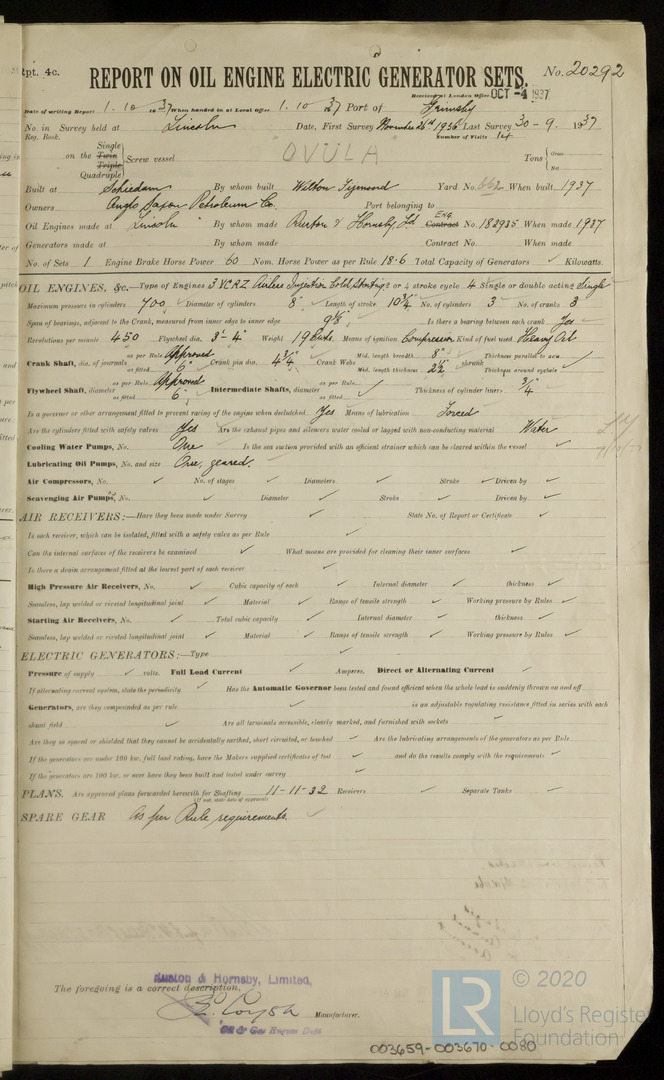 Rpt. 4c.
REPORT ON OIL ENGINE ELECTRIC GENERATOR SETS. No. 20292
Received at London Office OCT -4 1937
Date of writing Report 1. 10. 1937 When handed in at Local Office 1. 10. 1937 Port of Grimsby
No. in Survey held at Lincoln Date, First Survey November 26th 1936 Last Survey 30 - 9. 1937
Reg. Book. Number of Visits 14
on the Single Twin Triple Quadruple Screw vessel "OVULA" Tons Gross Net
Built at Schiedam By whom built Wilton Fijenoord Yard No. 662 When built 1937
Owners Anglo Saxon Petroleum Co. Port belonging to
Oil Engines made at Lincoln By whom made Ruston & Hornsby Ld Contract ENG. No. 183935 When made 1937
Generators made at By whom made Contract No. When made
No. of Sets 1 Engine Brake Horse Power 60 Nom. Horse Power as per Rule 18.6 Total Capacity of Generators ✓ Kilowatts.
OIL ENGINES, &c.—Type of Engines 3 VCRZ Airless Injection Cold Starting 2 or 4 stroke cycle 4 Single or double acting Single
Maximum pressure in cylinders 700 Diameter of cylinders 8" Length of stroke 10 3/4" No. of cylinders 3 No. of cranks 3
Span of bearings, adjacent to the Crank, measured from inner edge to inner edge 9 1/8" Is there a bearing between each crank Yes
Revolutions per minute 450 Flywheel dia. 3'- 4" Weight 19 Cwts. Means of ignition Compression Kind of fuel used Heavy Oil
Crank Shaft, dia. of journals as per Rule Approved as fitted 6" Crank pin dia. 4 3/4" Crank Webs Mid. length breadth 8" Mid. length thickness 2 1/2" shrunk Thickness parallel to axis ✓ Thickness around eyehole ✓
Flywheel Shaft, diameter as per Rule Approved as fitted 6" Intermediate Shafts, diameter as per Rule ✓ as fitted Thickness of cylinder liners 3/4"
Is a governor or other arrangement fitted to prevent racing of the engine when declutched Yes Means of lubrication Forced
Are the cylinders fitted with safety valves Yes Are the exhaust pipes and silencers water cooled or lagged with non-conducting material Water
Cooling Water Pumps, No. One Is the sea suction provided with an efficient strainer which can be cleared within the vessel ✓
Lubricating Oil Pumps, No. and size One, geared.
Air Compressors, No. ✓ No. of stages ✓ Diameters ✓ Stroke ✓ Driven by ✓
Scavenging Air Pumps, No. Diameter ✓ Stroke ✓ Driven by ✓
AIR RECEIVERS:—Have they been made under Survey ✓ State No. of Report or Certificate ✓
Is each receiver, which can be isolated, fitted with a safety valve as per Rule ✓
Can the internal surfaces of the receivers be examined ✓ What means are provided for cleaning their inner surfaces ✓
Is there a drain arrangement fitted at the lowest part of each receiver ✓
High Pressure Air Receivers, No. ✓ Cubic capacity of each Internal diameter ✓ thickness ✓
Seamless, lap welded or riveted longitudinal joint ✓ Material ✓ Range of tensile strength ✓ Working pressure by Rules ✓
Starting Air Receivers, No. ✓ Total cubic capacity ✓ Internal diameter ✓ thickness ✓
Seamless, lap welded or riveted longitudinal joint ✓ Material ✓ Range of tensile strength ✓ Working pressure by Rules ✓
ELECTRIC GENERATORS:—Type ✓
Pressure of supply ✓ volts. Full Load Current ✓ Amperes. Direct or Alternating Current ✓
If alternating current system, state the periodicity ✓ Has the Automatic Governor been tested and found efficient when the whole load is suddenly thrown on and off
Generators, are they compounded as per rule ✓ is an adjustable regulating resistance fitted in series with each
shunt field ✓ Are all terminals accessible, clearly marked, and furnished with sockets ✓
Are they so spaced or shielded that they cannot be accidentally earthed, short circuited, or touched ✓ Are the lubricating arrangements of the generators as per Rule
If the generators are under 100 kw. full load rating, have the Makers supplied certificates of test ✓ and do the results comply with the requirements ✓
If the generators are 100 kw. or over have they been built and tested under survey ✓
PLANS. Are approved plans forwarded herewith for Shafting 11-11-32 Receivers ✓ Separate Tanks ✓
(If not, state date of approval)
SPARE GEAR As per Rule requirements. ✓
Ruston & Hornsby, Limited,
The foregoing is a correct description,
Manufacturer.
Oil & Gas Engine Dept
LR © 2020
Lloyd's Register
Foundation
003659-003670-0080